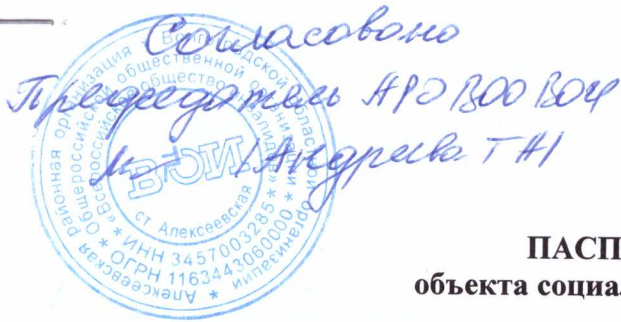 Согласовано
Председатель АРО ВОО ВОИ
/Андреева Т.Н/
Алексеевская районная организация Волгоградской областной организации
Общероссийской общественной организации
«Всероссийское общество инвалидов»
ВОИ
ст Алексеевская
* ИНН 3457003285 *
* ОГРН 1163443060000 *
ПАСП
объекта социал